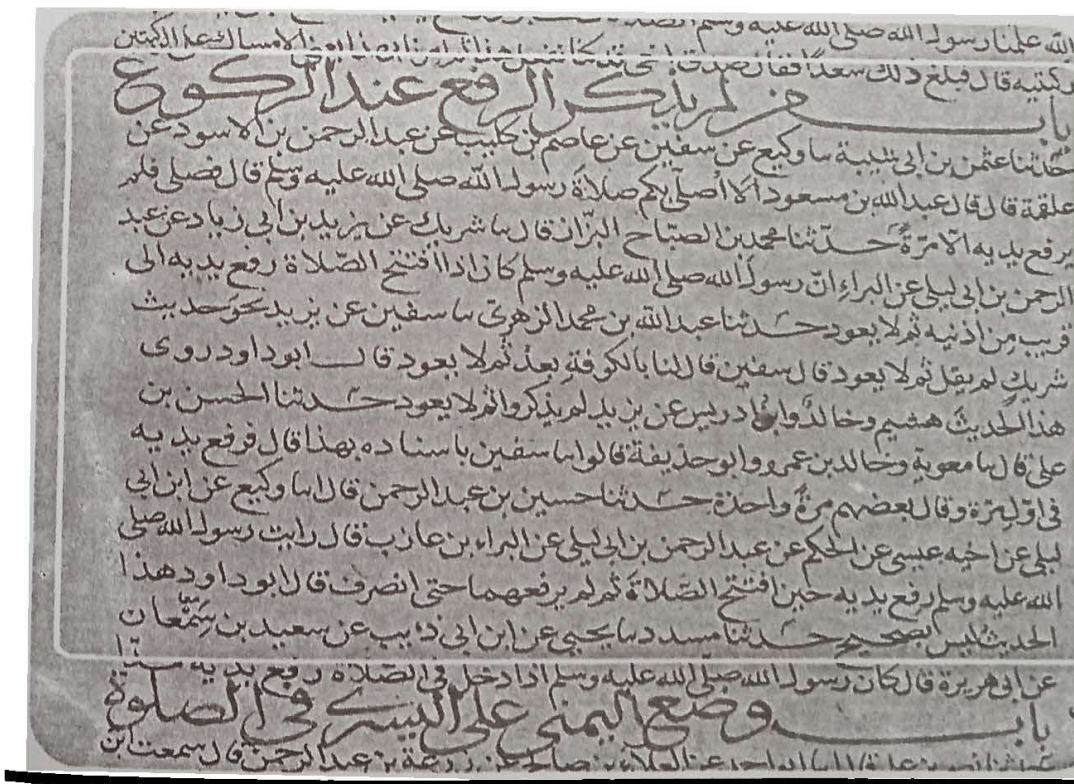 الله علمنا رسول الله صلى الله عليه وسلم
ركبتيه قال فبلغ ذلك سعدا فقال صدق اخي كنا نفعل هذا ثم امرنا بهذا يعنى الامساك على الركبتين
باب من لم يذكر الرفع عند الركوع
حدثنا عثمن بن ابى شيبة نا وكيع عن سفين عن عاصم بن كليب عن عبد الرحمن بن الاسود عن
علقمة قال قال عبد الله بن مسعود الا اصلى بكم صلاة رسول الله صلى الله عليه وسلم قال فصلى فلم
يرفع يديه الا مرة حدثنا محمد بن الصباح البزاز قال نا شريك عن يزيد بن ابى زياد عن عبد
الرحمن بن ابى ليلى عن البراء ان رسول الله صلى الله عليه وسلم كان اذا افتتح الصلاة رفع يديه الى
قريب من اذنيه ثم لا يعود حدثنا عبد الله بن محمد الزهرى نا سفين عن يزيد نحو حديث
شريك لم يقل ثم لا يعود قال سفين قال لنا بالكوفة بعد ثم لا يعود قال ابو داود روى
هذا الحديث هشيم وخالد وابن ادريس عن يزيد لم يذكروا ثم لا يعود حدثنا الحسن بن
على قال نا معوية وخالد بن عمرو وابو حذيفة قالوا نا سفين باسناده بهذا قال فرفع يديه
فى اول مرة وقال بعضهم مرة واحدة حدثنا حسين بن عبد الرحمن قال انا وكيع عن ابن ابى
ليلى عن اخيه عيسى عن الحكم عن عبد الرحمن بن ابى ليلى عن البراء بن عازب قال رايت رسول الله صلى
الله عليه وسلم رفع يديه حين افتتح الصلاة ثم لم يرفعهما حتى انصرف قال ابو داود هذا
الحديث ليس بصحيح حدثنا مسدد نا يحيى عن ابن ابى ذيب عن سعيد بن سمعان
عن ابى هريرة قال كان رسول الله صلى الله عليه وسلم اذا دخل فى الصلاة رفع يديه مدا
باب وضع اليمنى على اليسرى فى الصلوة
حدثنا نصر بن على قال انا ابو احمد عن العلاء بن صالح عن زرعة بن عبد الرحمن قال سمعت ابن